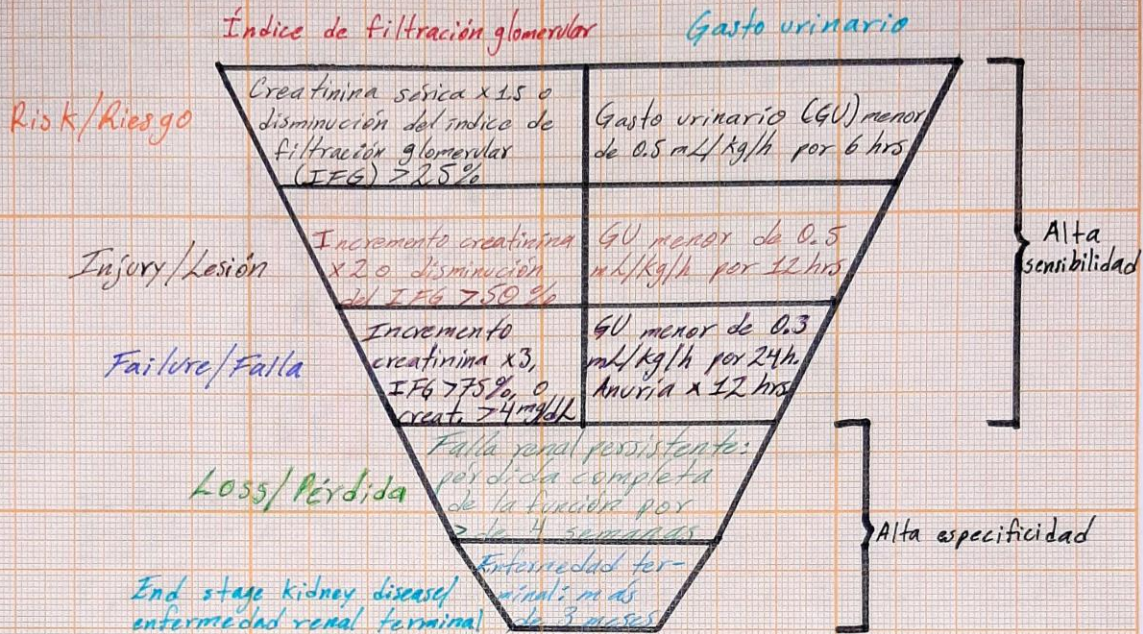 Índice de filtración glomerular
Gasto urinario
Risk/Riesgo
Creatinina sérica x1.5 o
disminución del índice de
filtración glomerular
(IFG) >25%
Gasto urinario (GU) menor
de 0.5 mL/kg/h por 6 hrs
Injury/Lesión
Incremento creatinina
x2 o disminución
del IFG >50%
GU menor de 0.5
mL/kg/h por 12 hrs
Alta
sensibilidad
Failure/Falla
Incremento
creatinina x3,
IFG >75%, o
creat. >4 mg/dL
GU menor de 0.3
mL/kg/h por 24h.
Anuria x 12 hrs
Loss/Pérdida
Falla renal persistente:
pérdida completa
de la función por
> de 4 semanas
Alta especificidad
End stage kidney disease/
enfermedad renal terminal
Enfermedad ter-
minal: más
de 3 meses